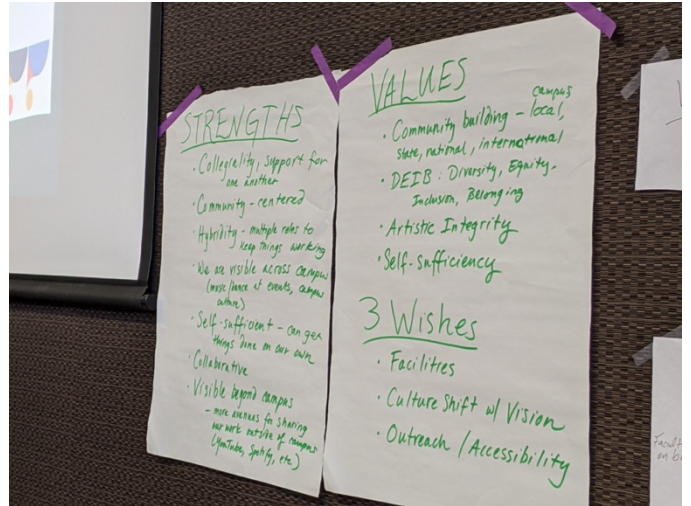 STRENGTHS
· Collegiality, support for
one another
· Community-centered
· Hybridity - multiple roles to
keep things working
· We are visible across campus
(music/dance at events, campus
culture)
· Self-sufficient - can get
things done on our own
· Collaborative
· Visible beyond campus
- more avenues for sharing
our work outside of campus
(YouTube, Spotify, etc)
VALUES
campus
· Community building - local,
state, national, international
· DEIB: Diversity, Equity,
Inclusion, Belonging
· Artistic Integrity
· Self-sufficiency
3 Wishes
· Facilities
· Culture Shift w/ Vision
· Outreach / Accessibility